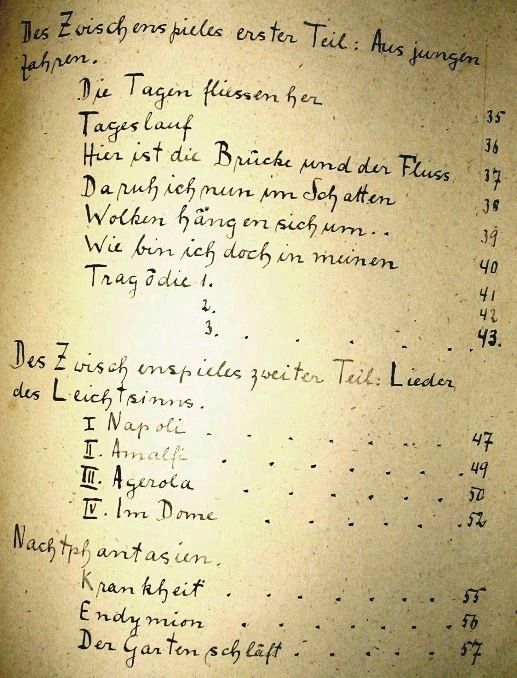 Des Zwischenspieles erster Teil: Aus jungen
Jahren.
Die Tagen fliessen her 35
Tageslauf 36
Hier ist die Brücke und der Fluss 37
Da ruh ich nun im Schatten 38
Wolken hängen sich um.. 39
Wie bin ich doch in meinen 40
Tragödie 1. 41
2. 42
3. . . . . . . 43.
Des Zwischenspieles zweiter Teil: Lieder
des Leichtsinns.
I Napoli . . . . . . . 47
II. Amalfi . . . . . . . 49
III. Agerola . . . . . . 50
IV. Im Dome . . . . . 52
Nachtphantasien.
Krankheit . . . . . . 55
Endymion . . . . . . 56
Der Garten schläft . . . . . 57